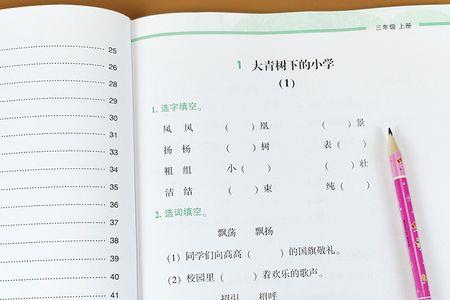 25
26
28
29
30
31
33
34
35
37
38
39
40
41
三年级 上册
1 大青树下的小学
(1)
1. 选字填空。
风 凤 （ ）凰 （ ）景
扬 杨 （ ）树 表（ ）
粗 组 小（ ） （ ）壮
洁 结 （ ）束 纯（ ）
2. 选词填空。
飘荡 飘扬
(1) 同学们向高高（ ）的国旗敬礼。
(2) 校园里（ ）着欢乐的歌声。
招引 招呼